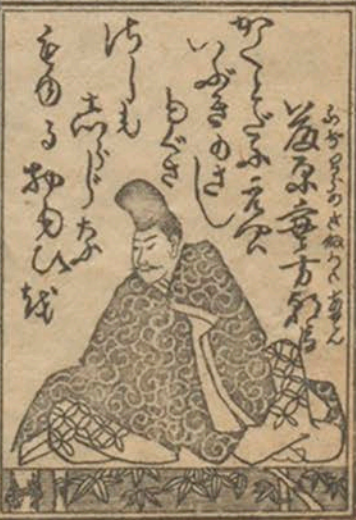 ふぢはらのさねかたあそん
藤原実方朝臣
かくとだにえやは
いぶきのさし
もぐさ
さしも
しらじな
もゆるおもひを